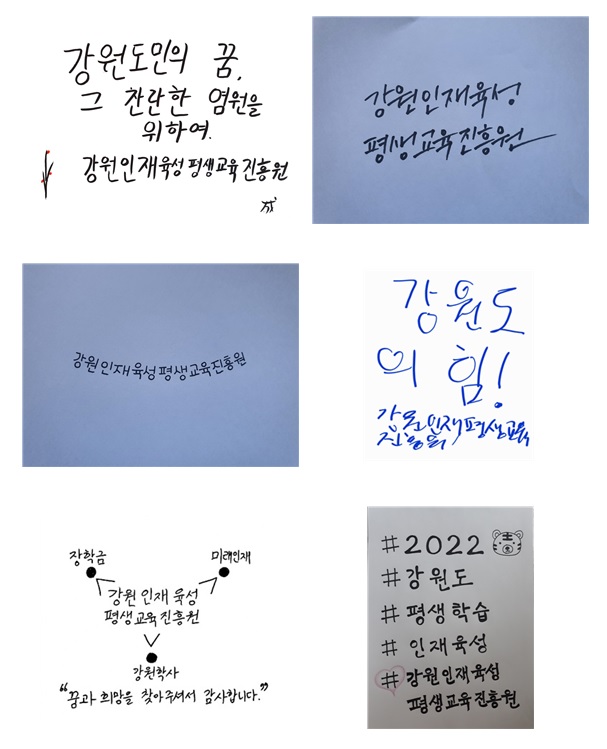 강원도민의 꿈,
그 찬란한 염원을
위하여.
강원인재육성평생교육진흥원
강원인재육성
평생교육진흥원
강원인재육성평생교육진흥원
강원도
의 힘!
강원인재평생교육
진흥원
장학금
미래인재
강원 인재 육성
평생교육진흥원
강원학사
“꿈과 희망을 찾아주셔서 감사합니다.”
#2022
#강원도
#평생학습
#인재육성
#강원인재육성
평생교육진흥원